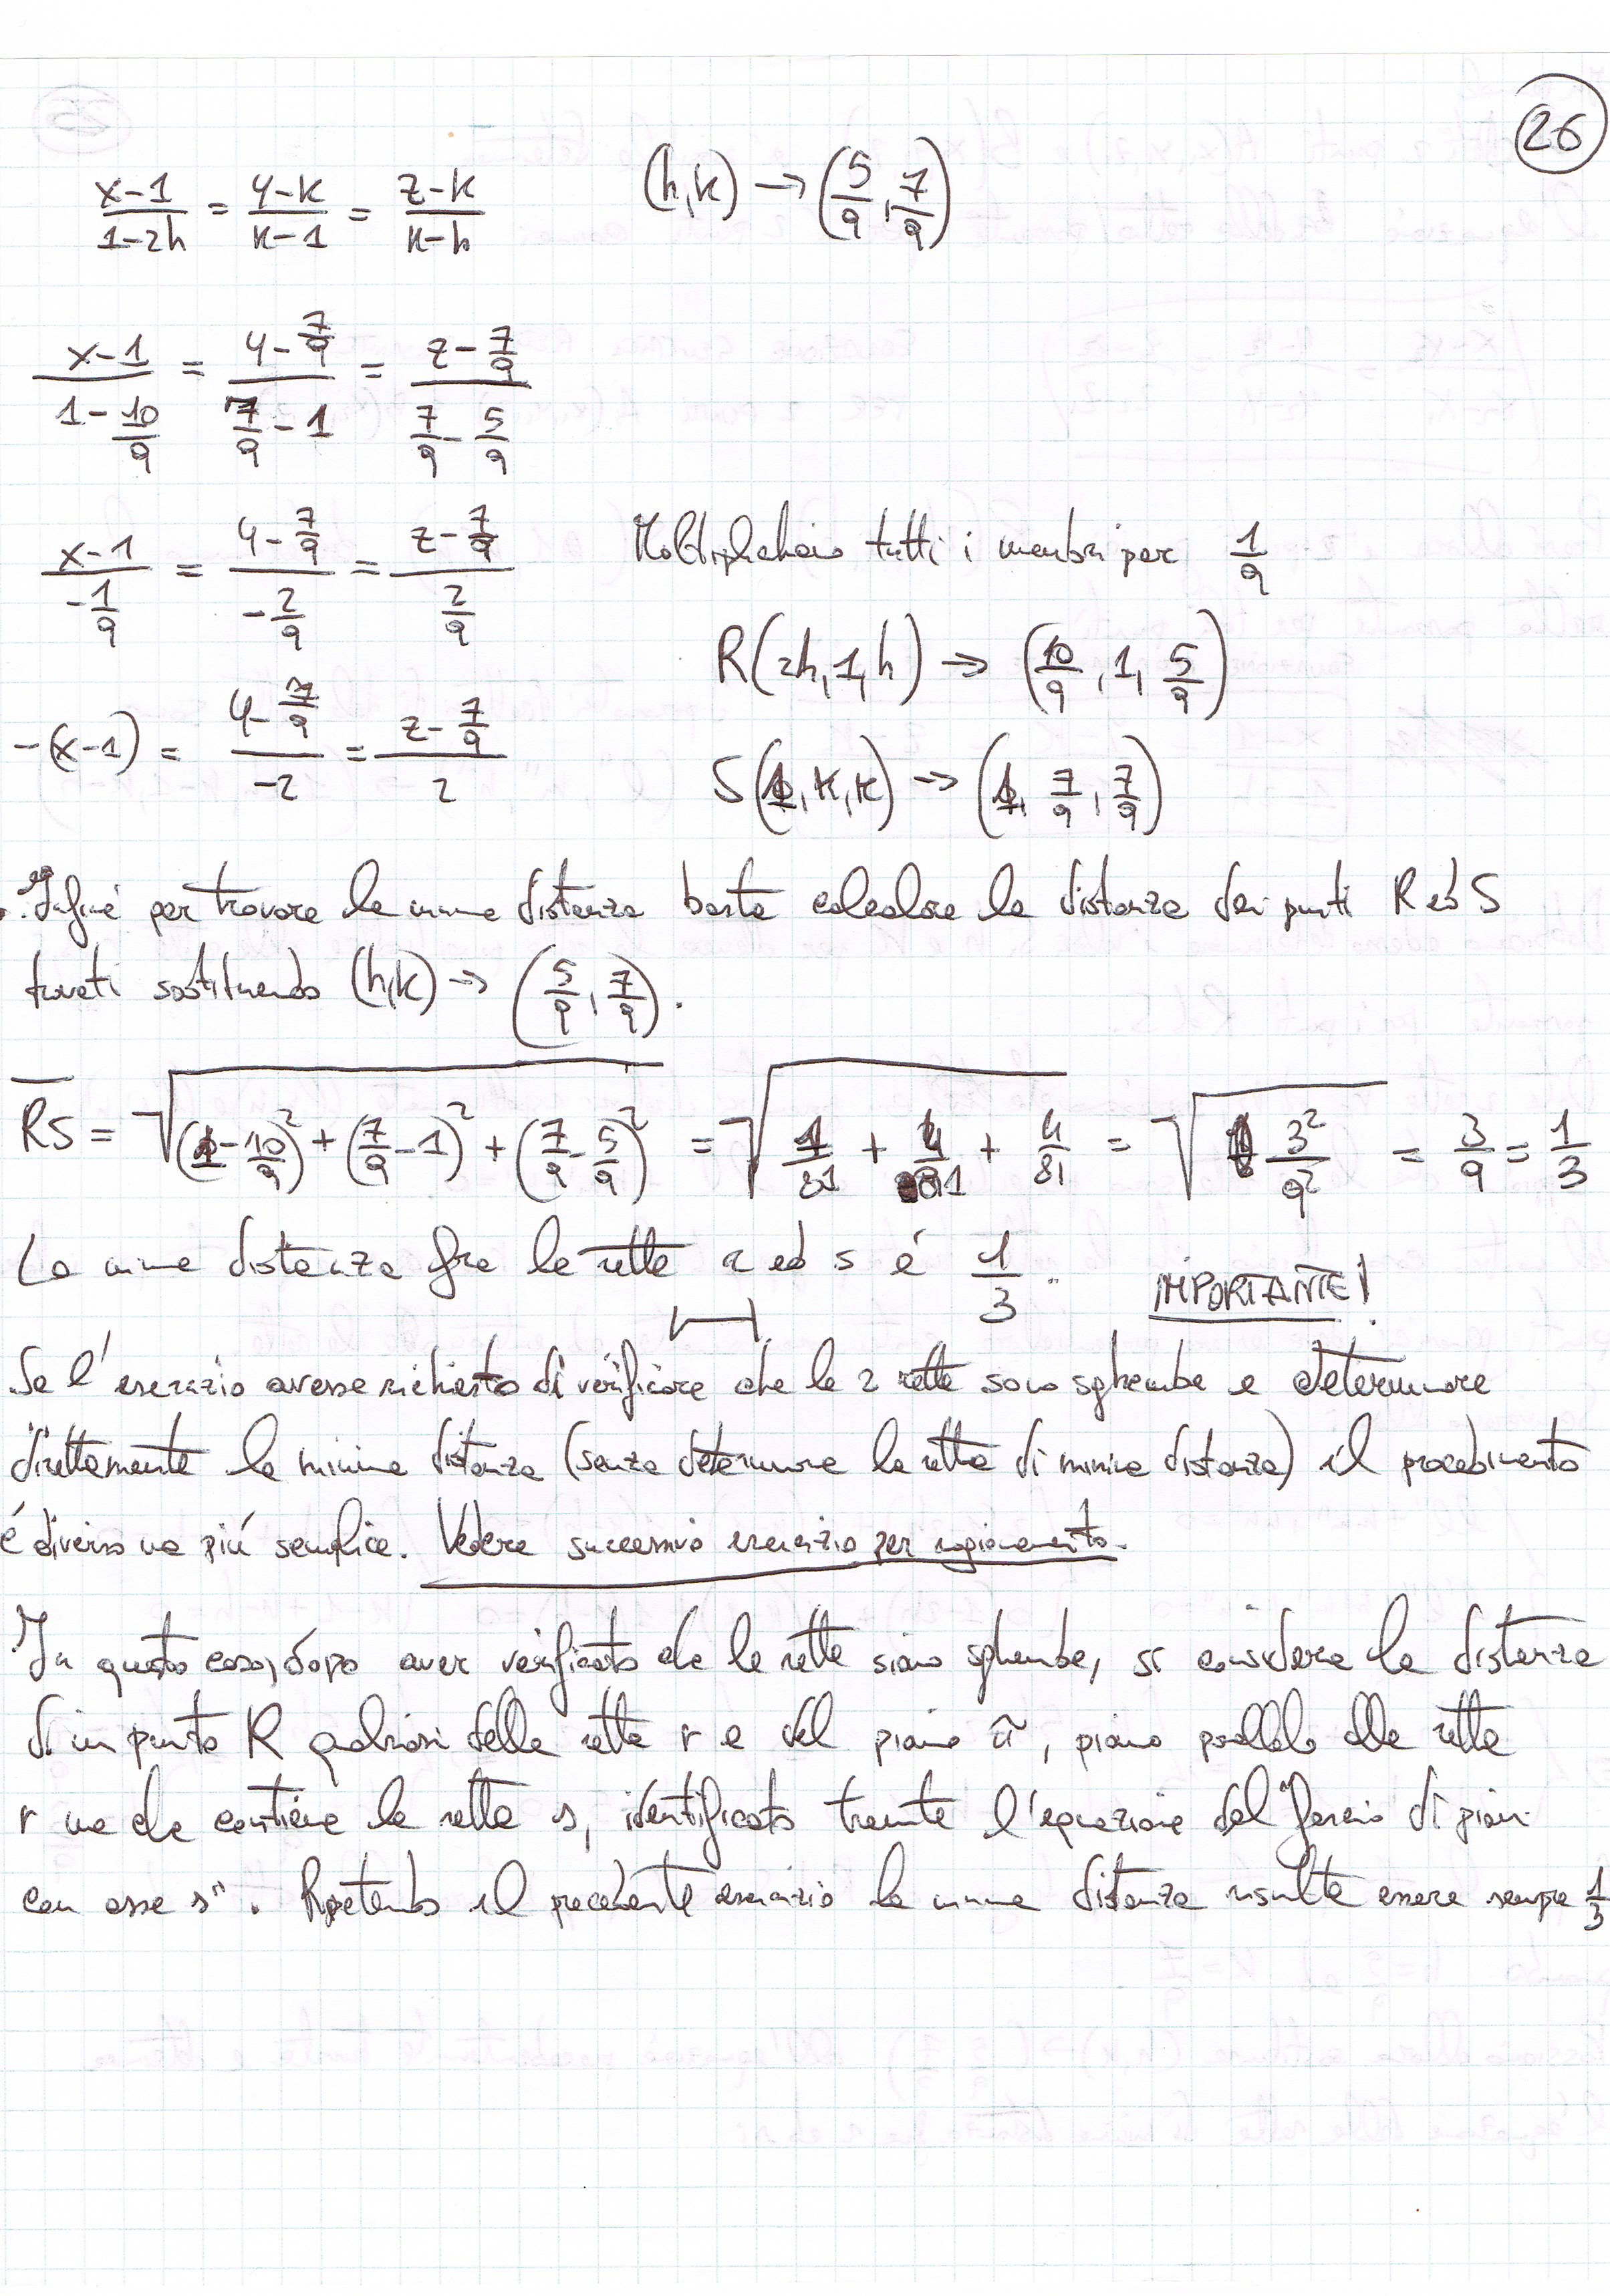 26
x-1/1-2h = y-k/k-1 = z-k/k-h (h,k) → (5/9, 7/9)
x-1/(1-10/9) = (y-7/9)/(7/9-1) = (z-7/9)/(7/9-5/9)
x-1/(-1/9) = (y-7/9)/(-2/9) = (z-7/9)/(2/9) Moltiplichiamo tutti i membri per 1/9
R(2h,1,h) → (10/9, 1, 5/9)
-(x-1) = (y-7/9)/-2 = (z-7/9)/2
S(1,k,k) → (1, 7/9, 7/9)
Infine per trovare la minima distanza basta calcolare la distanza dei punti R ed S
trovati sostituendo (h,k) → (5/9, 7/9).
RS = √((1-10/9)² + (7/9-1)² + (7/9-5/9)²) = √(1/81 + 4/81 + 4/81) = √(3²/9²) = 3/9 = 1/3
La minima distanza fra le rette r ed s é 1/3. IMPORTANTE!
Se l'esercizio avesse richiesto di verificare che le 2 rette sono sghembe e determinare
direttamente la minima distanza (senza determinare la retta di minima distanza) il procedimento
é diverso ma piú semplice. Vedere successivo esercizio per ragionamento.
In questo caso, dopo aver verificato che le rette siano sghembe, si considera la distanza
di un punto R qualsiasi della retta r e del piano π, piano parallelo alla retta
r ma che contiene la retta s, identificato tramite l'equazione del "fascio di piani
con asse s". Ripetendo il precedente esercizio la minima distanza risulta essere sempre 1/3